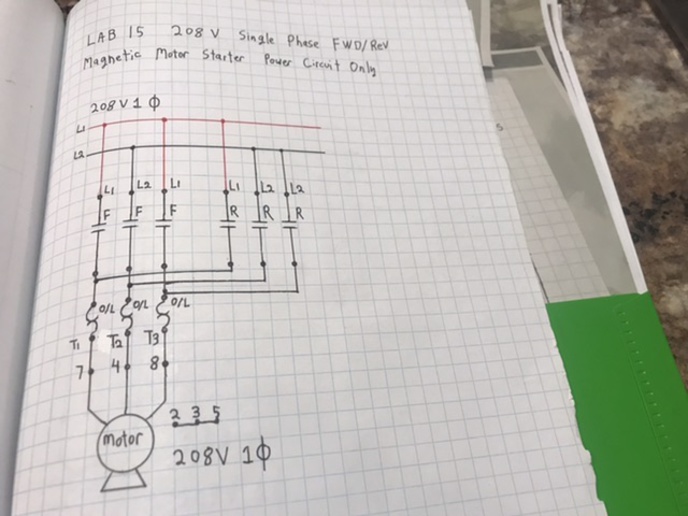 LAB 15 208 V Single Phase FWD/Rev
Magnetic Motor Starter Power Circuit Only
208V 1 Φ
L1
L2
L1 L2 L1 L1 L2 L2
F F F R R R
O/L O/L O/L
T1 T2 T3
7 4 8
2 3 5
motor
208V 1Φ